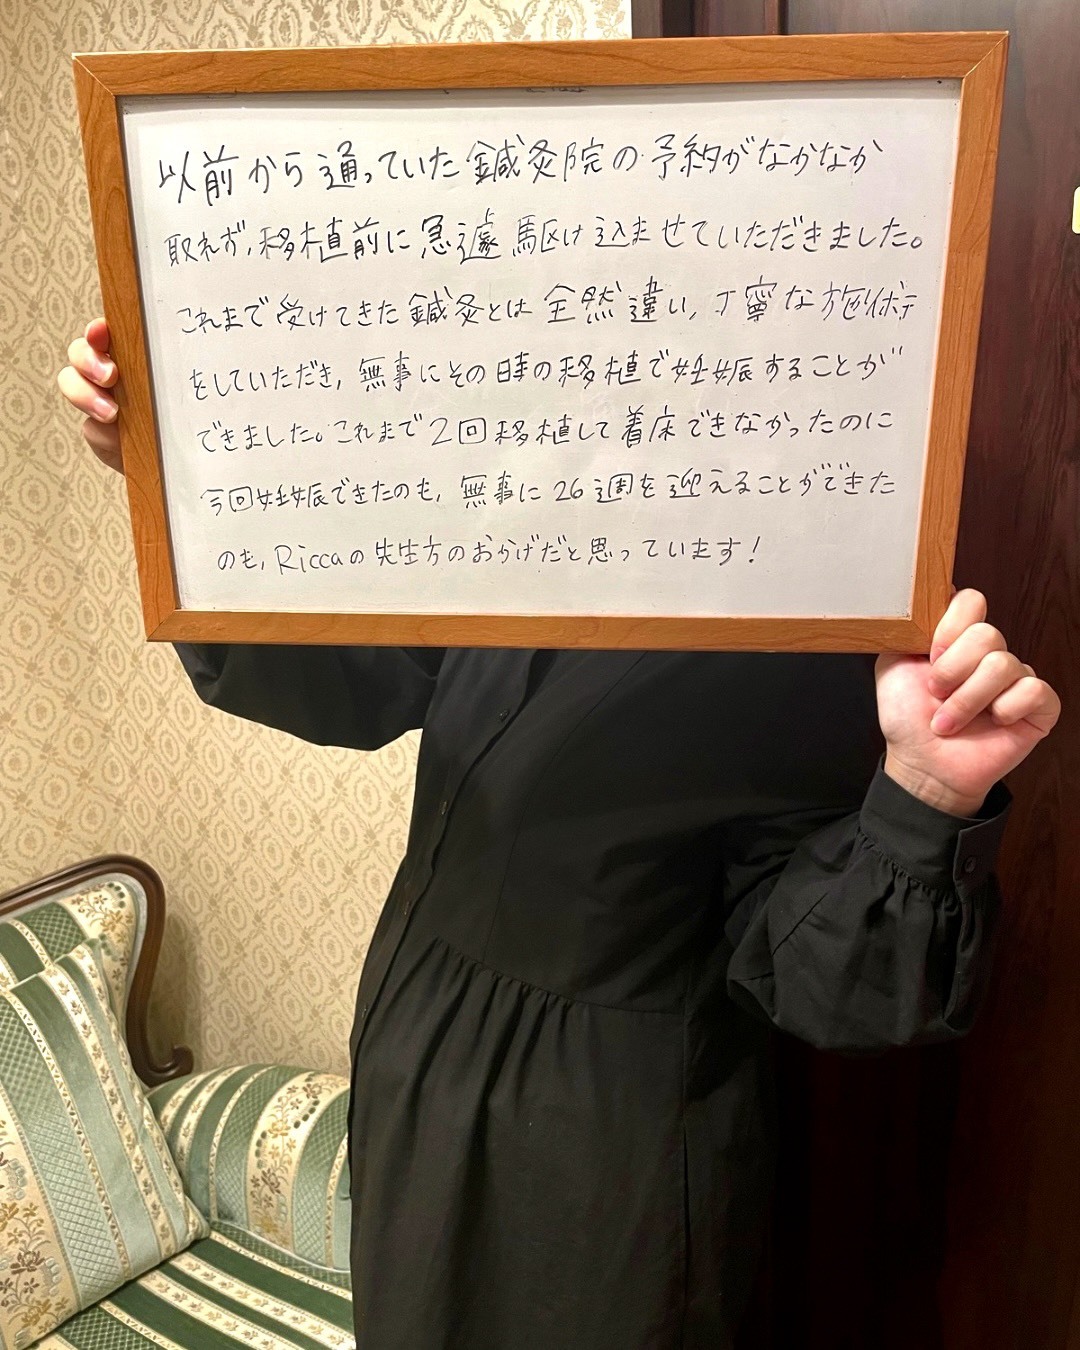 以前から通っていた鍼灸院の予約がなかなか
取れず,移植前に急遽駆け込ませていただきました。
これまで受けてきた鍼灸とは全然違い,丁寧な施術
をしていただき,無事にその時の移植で妊娠することが
できました。これまで2回移植して着床できなかったのに
今回妊娠できたのも,無事に26週を迎えることができた
のも,Riccaの先生方のおかげだと思っています!